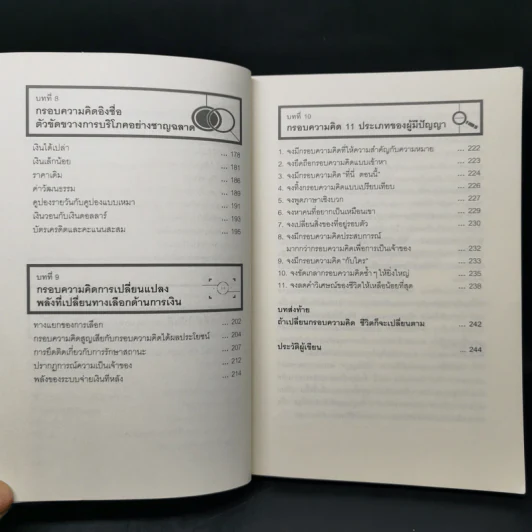 บทที่ 8
กรอบความคิดอิงชื่อ
ตัวขัดขวางการบริโภคอย่างชาญฉลาด
เงินได้เปล่า ... 178
เงินเล็กน้อย ... 181
ราคาเดิม ... 186
ค่าวัฒนธรรม ... 189
คูปองรายวันกับคูปองแบบเหมา ... 191
เงินวอนกับเงินดอลลาร์ ... 193
บัตรเครดิตและคะแนนสะสม ... 195
บทที่ 9
กรอบความคิดการเปลี่ยนแปลง
พลังที่เปลี่ยนทางเลือกด้านการเงิน
ทางแยกของการเลือก ... 202
กรอบความคิดสูญเสียกับกรอบความคิดได้ผลประโยชน์ ... 204
การยึดติดเกี่ยวกับการรักษาสถานะ ... 207
ปรากฏการณ์ความเป็นเจ้าของ ... 212
พลังของระบบจ่ายเงินทีหลัง ... 214
บทที่ 10
กรอบความคิด 11 ประเภทของผู้มีปัญญา
1. จงมีกรอบความคิดที่ให้ความสำคัญกับความหมาย ... 222
2. จงยึดถือกรอบความคิดแบบเข้าหา ... 223
3. จงมีกรอบความคิด "ที่นี่ ตอนนี้" ... 224
4. จงทิ้งกรอบความคิดแบบเปรียบเทียบ ... 226
5. จงพูดภาษาเชิงบวก ... 227
6. จงหาคนที่อยากเป็นเหมือนเขา ... 229
7. จงเปลี่ยนสิ่งของที่อยู่รอบตัว ... 230
8. จงมีกรอบความคิดประสบการณ์
มากกว่ากรอบความคิดเพื่อการเป็นเจ้าของ ... 232
9. จงมีกรอบความคิด "กับใคร" ... 233
10. จงขัดเกลากรอบความคิดซ้ำๆ ให้ยิ่งใหญ่ ... 235
11. จงลดคำวิเศษณ์ของชีวิตให้เหลือน้อยที่สุด ... 238
บทส่งท้าย
ถ้าเปลี่ยนกรอบความคิด ชีวิตก็จะเปลี่ยนตาม ... 242
ประวัติผู้เขียน ... 244